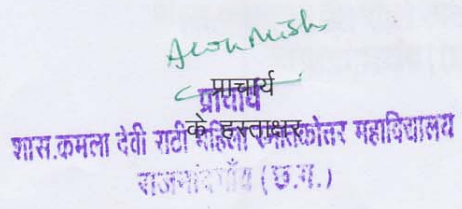 प्राचार्य
प्राचार्य
के हस्ताक्षर
शास.कमला देवी राठी महिला स्नातकोत्तर महाविद्यालय
राजनांदगाँव (छ.ग.)